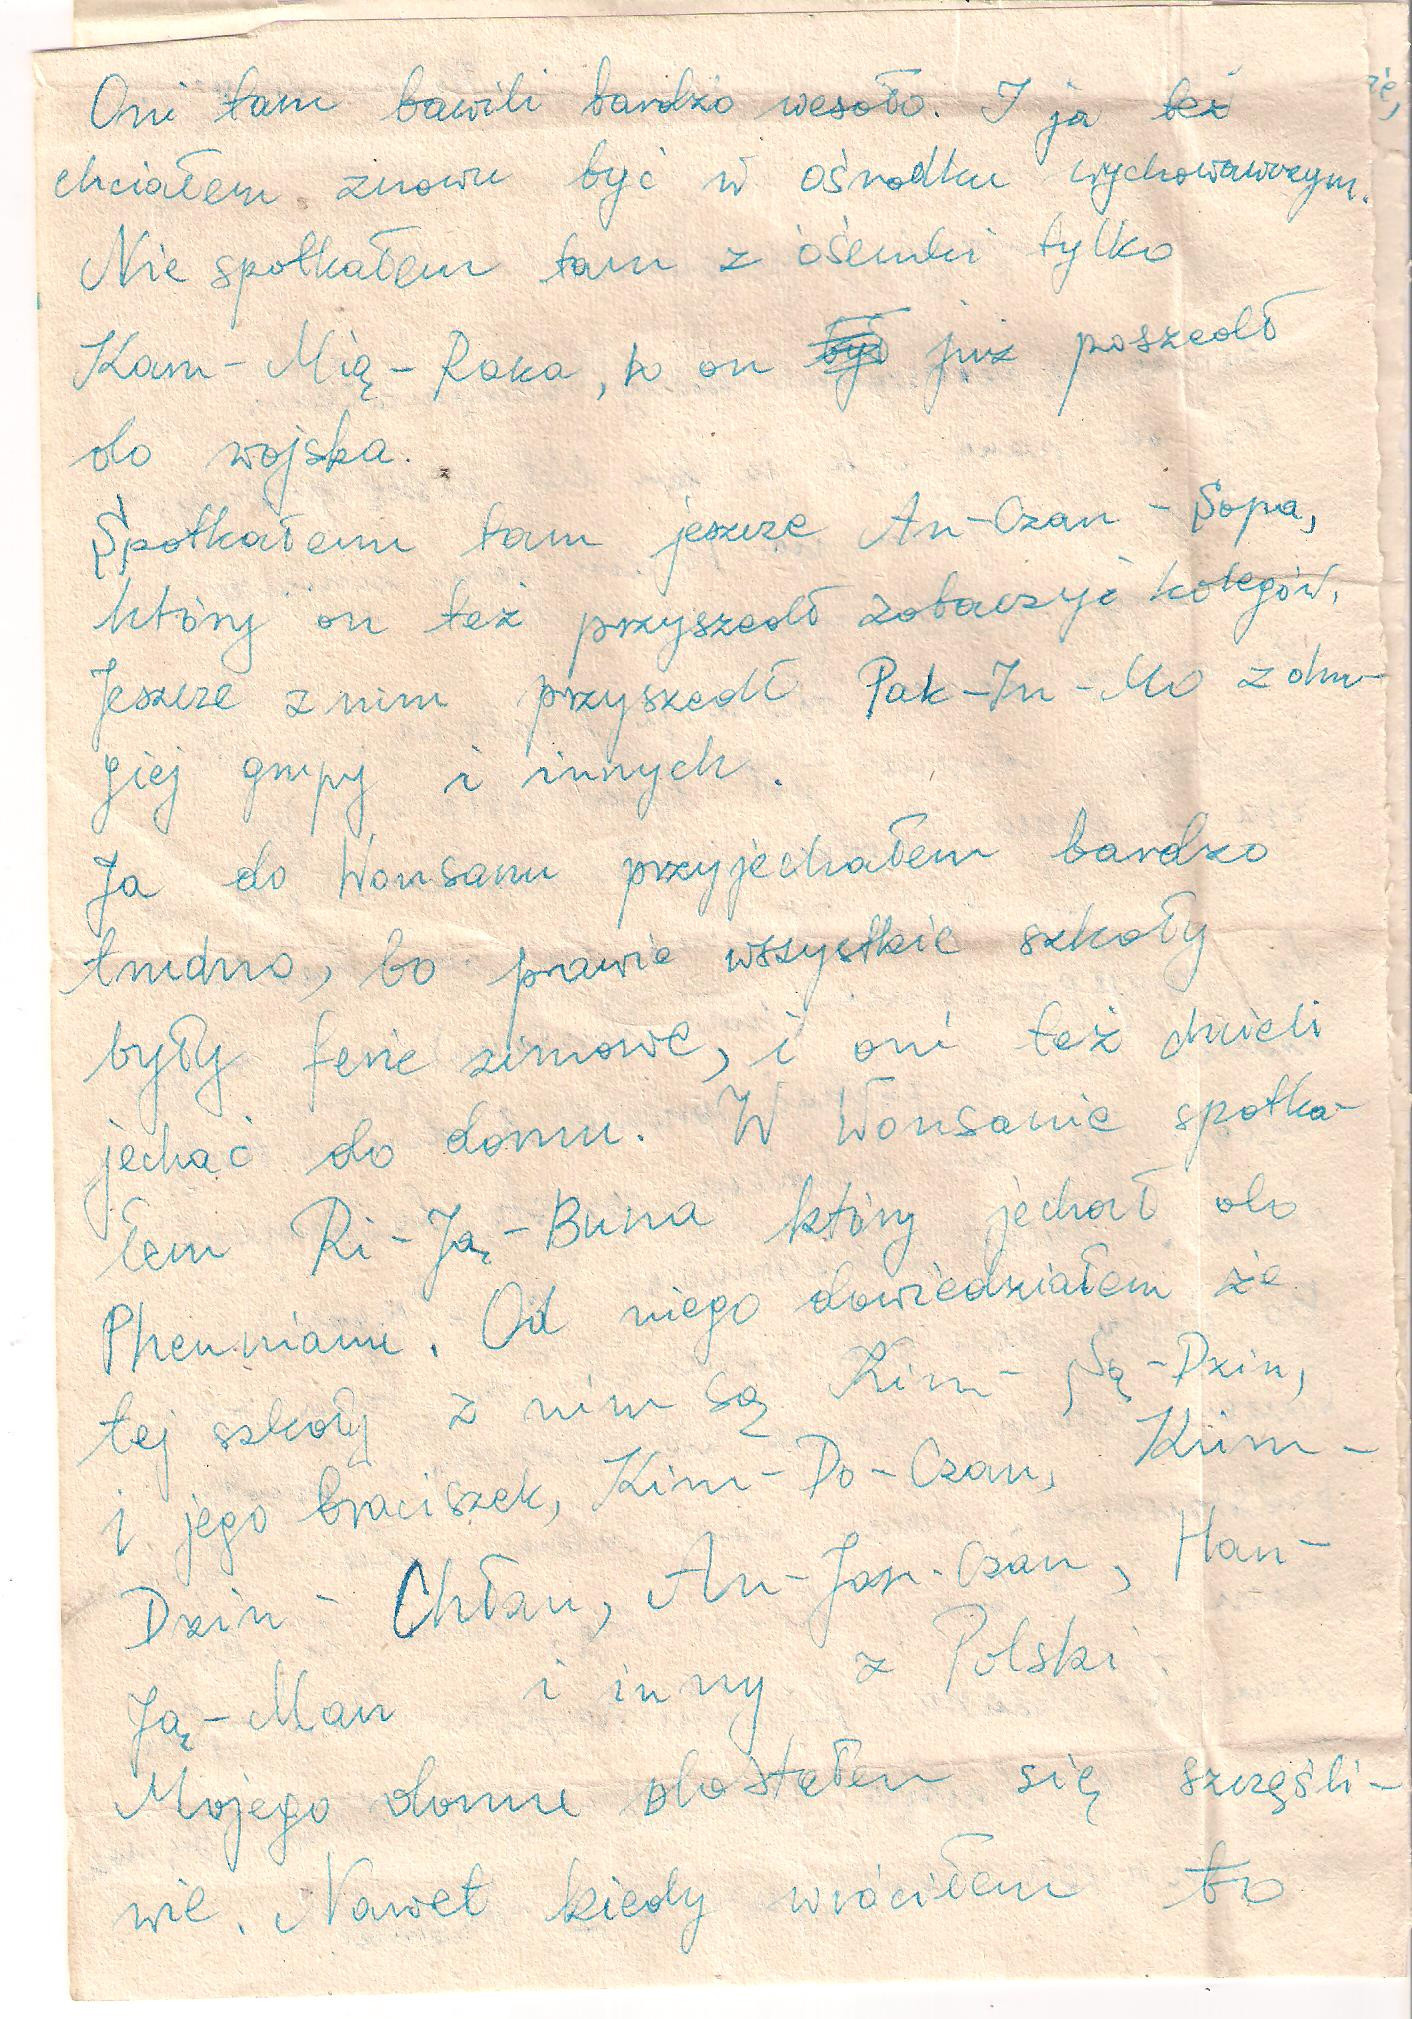 Oni tam bawili bardzo wesoło. I ja też
chciałem znowu być w ośrodku wychowawczym.
Nie spotkałem tam z ósemki tylko
Kam-Mią-Roka, bo on był już poszedł
do wojska.
Spotkałem tam jeszcze An-Czan-Sopa,
który on też przyszedł zobaczyć kolegów.
Jeszcze z nim przyszedł Pak-In-Mo z dru-
giej grupy i innych.
Ja do Wonsanu przyjechałem bardzo
trudno, bo prawie wszystkie szkoły
były ferie zimowe, i oni też chcieli
jechać do domu. W Wonsanie spotka-
łem Ri-Ją-Buna który jechał do
Phenianu. Od niego dowiedziałem że
tej szkoły z nim są Kim-Są-Dzin,
i jego braciszek, Kim-Do-Czan, Kim-
Dzin-Chłan, An-Jan-Czan, Han-
Ją-Man i inny z Polski.
Mojego domu dostałem się szczęśli-
wie. Nawet kiedy wróciłem to